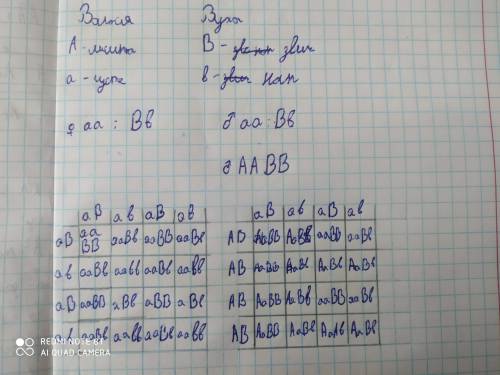 Вуха
А -
В - звич
а -
в - нап
♀ аа : Вв
♂ аа : Вв
♂ ААВВ
аВ ав аВ ав
аВ ав аВ ав
аВ аа ВВ ааВв ааВВ ааВв
АВ АаВВ АаВв ааВВ ааВв
ав ааВв аавв ааВв аавв
АВ АаВВ АаВв АаВВ АаВв
аВ ааВВ аВв аВВ аВв
АВ АаВВ АаВв ааВВ ааВв
ав ааВв аавв ааВв аавв
АВ АаВВ АаВв АаВв
REDMI NOTE 8T
AI QUAD CAMERA